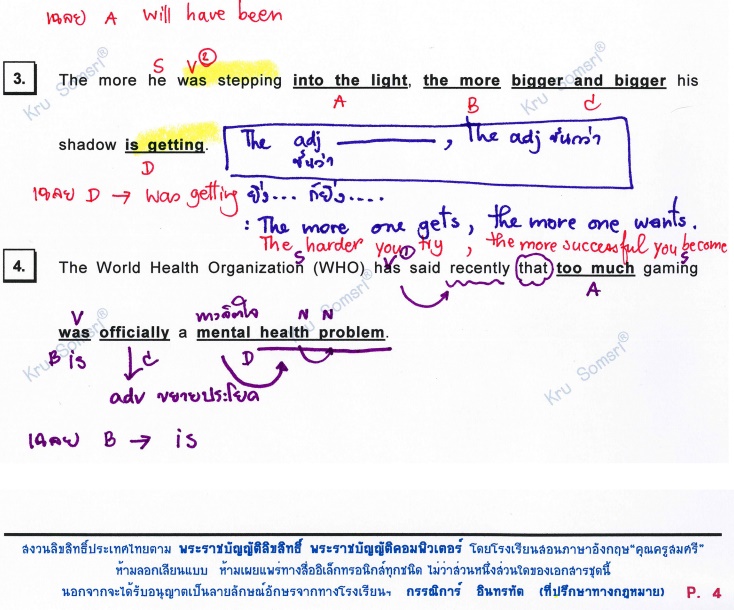 เฉลย A will have been
S V ②
3. The more he was stepping into the light, the more bigger and bigger his
A B C
shadow is getting. The adj ขั้นกว่า , The adj ขั้นกว่า
D
เฉลย D → was getting ยิ่ง... ก็ยิ่ง....
: The more one gets, the more one wants.
The harder you try, the more successful you become
S V ① S
4. The World Health Organization (WHO) has said recently that too much gaming
A
V ทางจิตใจ N N
was officially a mental health problem.
B is C D
adv ขยายประโยค
เฉลย B → is
Kru Somsri®
Kru Somsri®
Kru Somsri®
Kru Somsri®
Kru Somsri®
สงวนลิขสิทธิ์ประเทศไทยตาม พระราชบัญญัติลิขสิทธิ์ พระราชบัญญัติคอมพิวเตอร์ โดยโรงเรียนสอนภาษาอังกฤษ"คุณครูสมศรี"
ห้ามลอกเลียนแบบ ห้ามเผยแพร่ทางสื่ออิเล็กทรอนิกส์ทุกชนิด ไม่ว่าส่วนหนึ่งส่วนใดของเอกสารชุดนี้
นอกจากจะได้รับอนุญาตเป็นลายลักษณ์อักษรจากทางโรงเรียนฯ กรรณิการ์ ธินทรทัต (ที่ปรึกษาทางกฎหมาย) P. 4